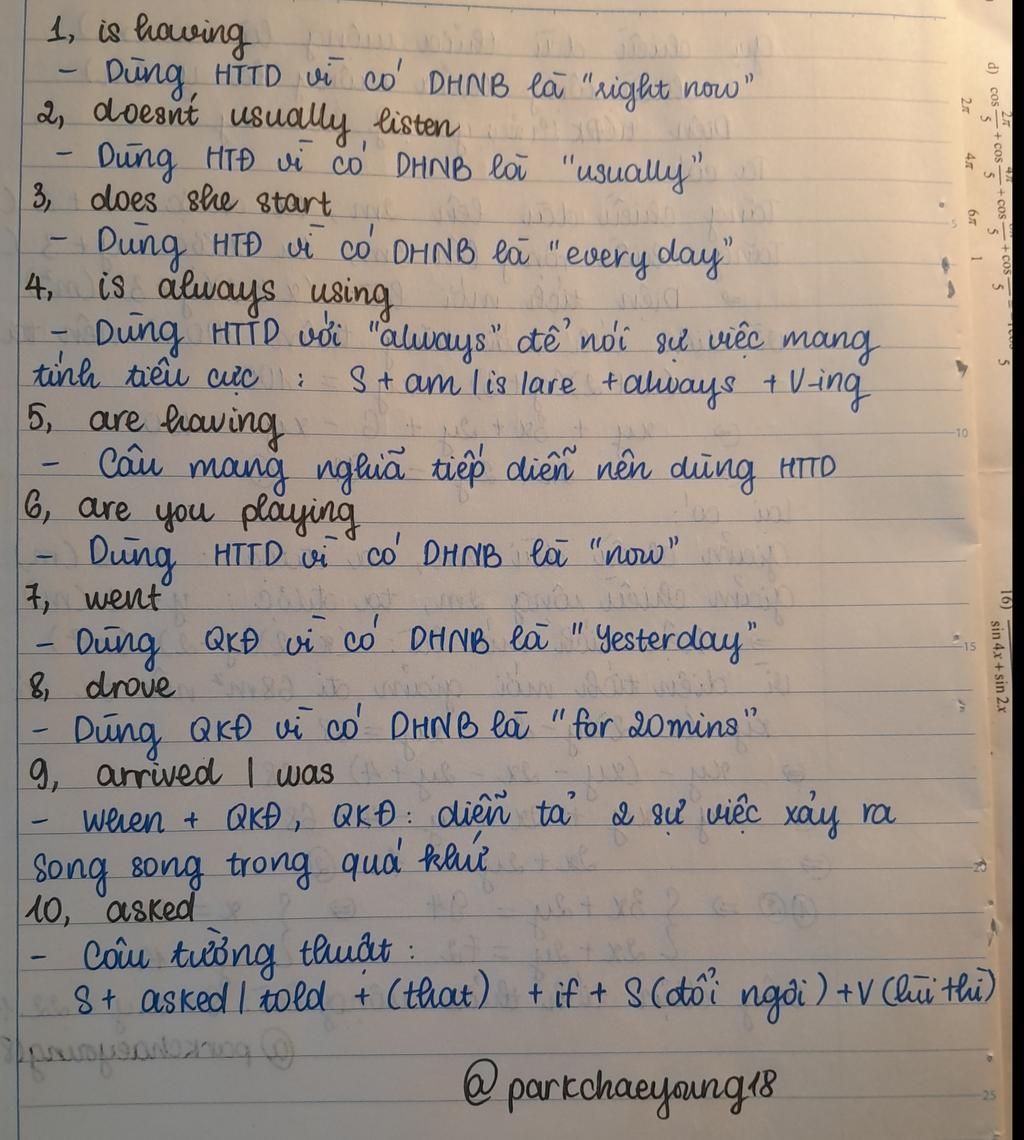 1, is having
- Dùng HTTD vì có DHNB là "right now"
2, doesn't usually listen
- Dùng HTĐ vì có DHNB là "usually"
3, does she start
- Dùng HTĐ vì có DHNB là "every day"
4, is always using
- Dùng HTTD với "always" để nói sự việc mang
tính tiêu cực : S + am / is / are + always + V-ing
5, are having
- Câu mang nghĩa tiếp diễn nên dùng HTTD
6, are you playing
- Dùng HTTD vì có DHNB là "now"
7, went
- Dùng QKĐ vì có DHNB là "Yesterday"
8, drove
- Dùng QKĐ vì có DHNB là "for 20 mins"
9, arrived / was
- When + QKĐ, QKĐ : diễn tả 2 sự việc xảy ra
song song trong quá khứ
10, asked
- Câu tường thuật :
S + asked / told + (that) + if + S (đổi ngôi) + V (lùi thì)
@parkchaeyoung18
5
10
15
20
25
16)
sin 4x + sin 2x